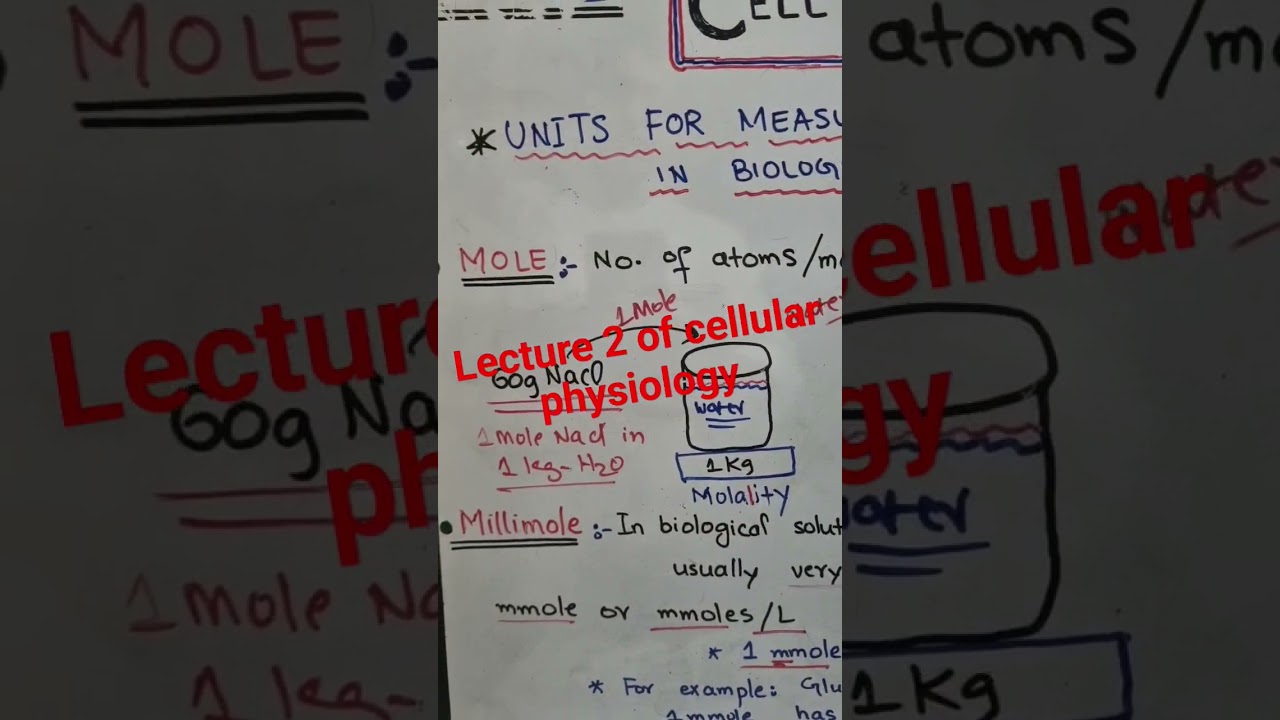 CELL
* UNITS FOR MEASU
IN BIOLOG
MOLE :- No. of atoms/m
1 Mole
Lecture 2 of cellular
physiology
60g NaCl
water
1 mole NaCl in
1 kg- H2O
1 Kg
Molality
• Millimole :- In biological solut
usually very
mmole or mmoles/L
* 1 mmole
* For example: Glu
1 mmole has